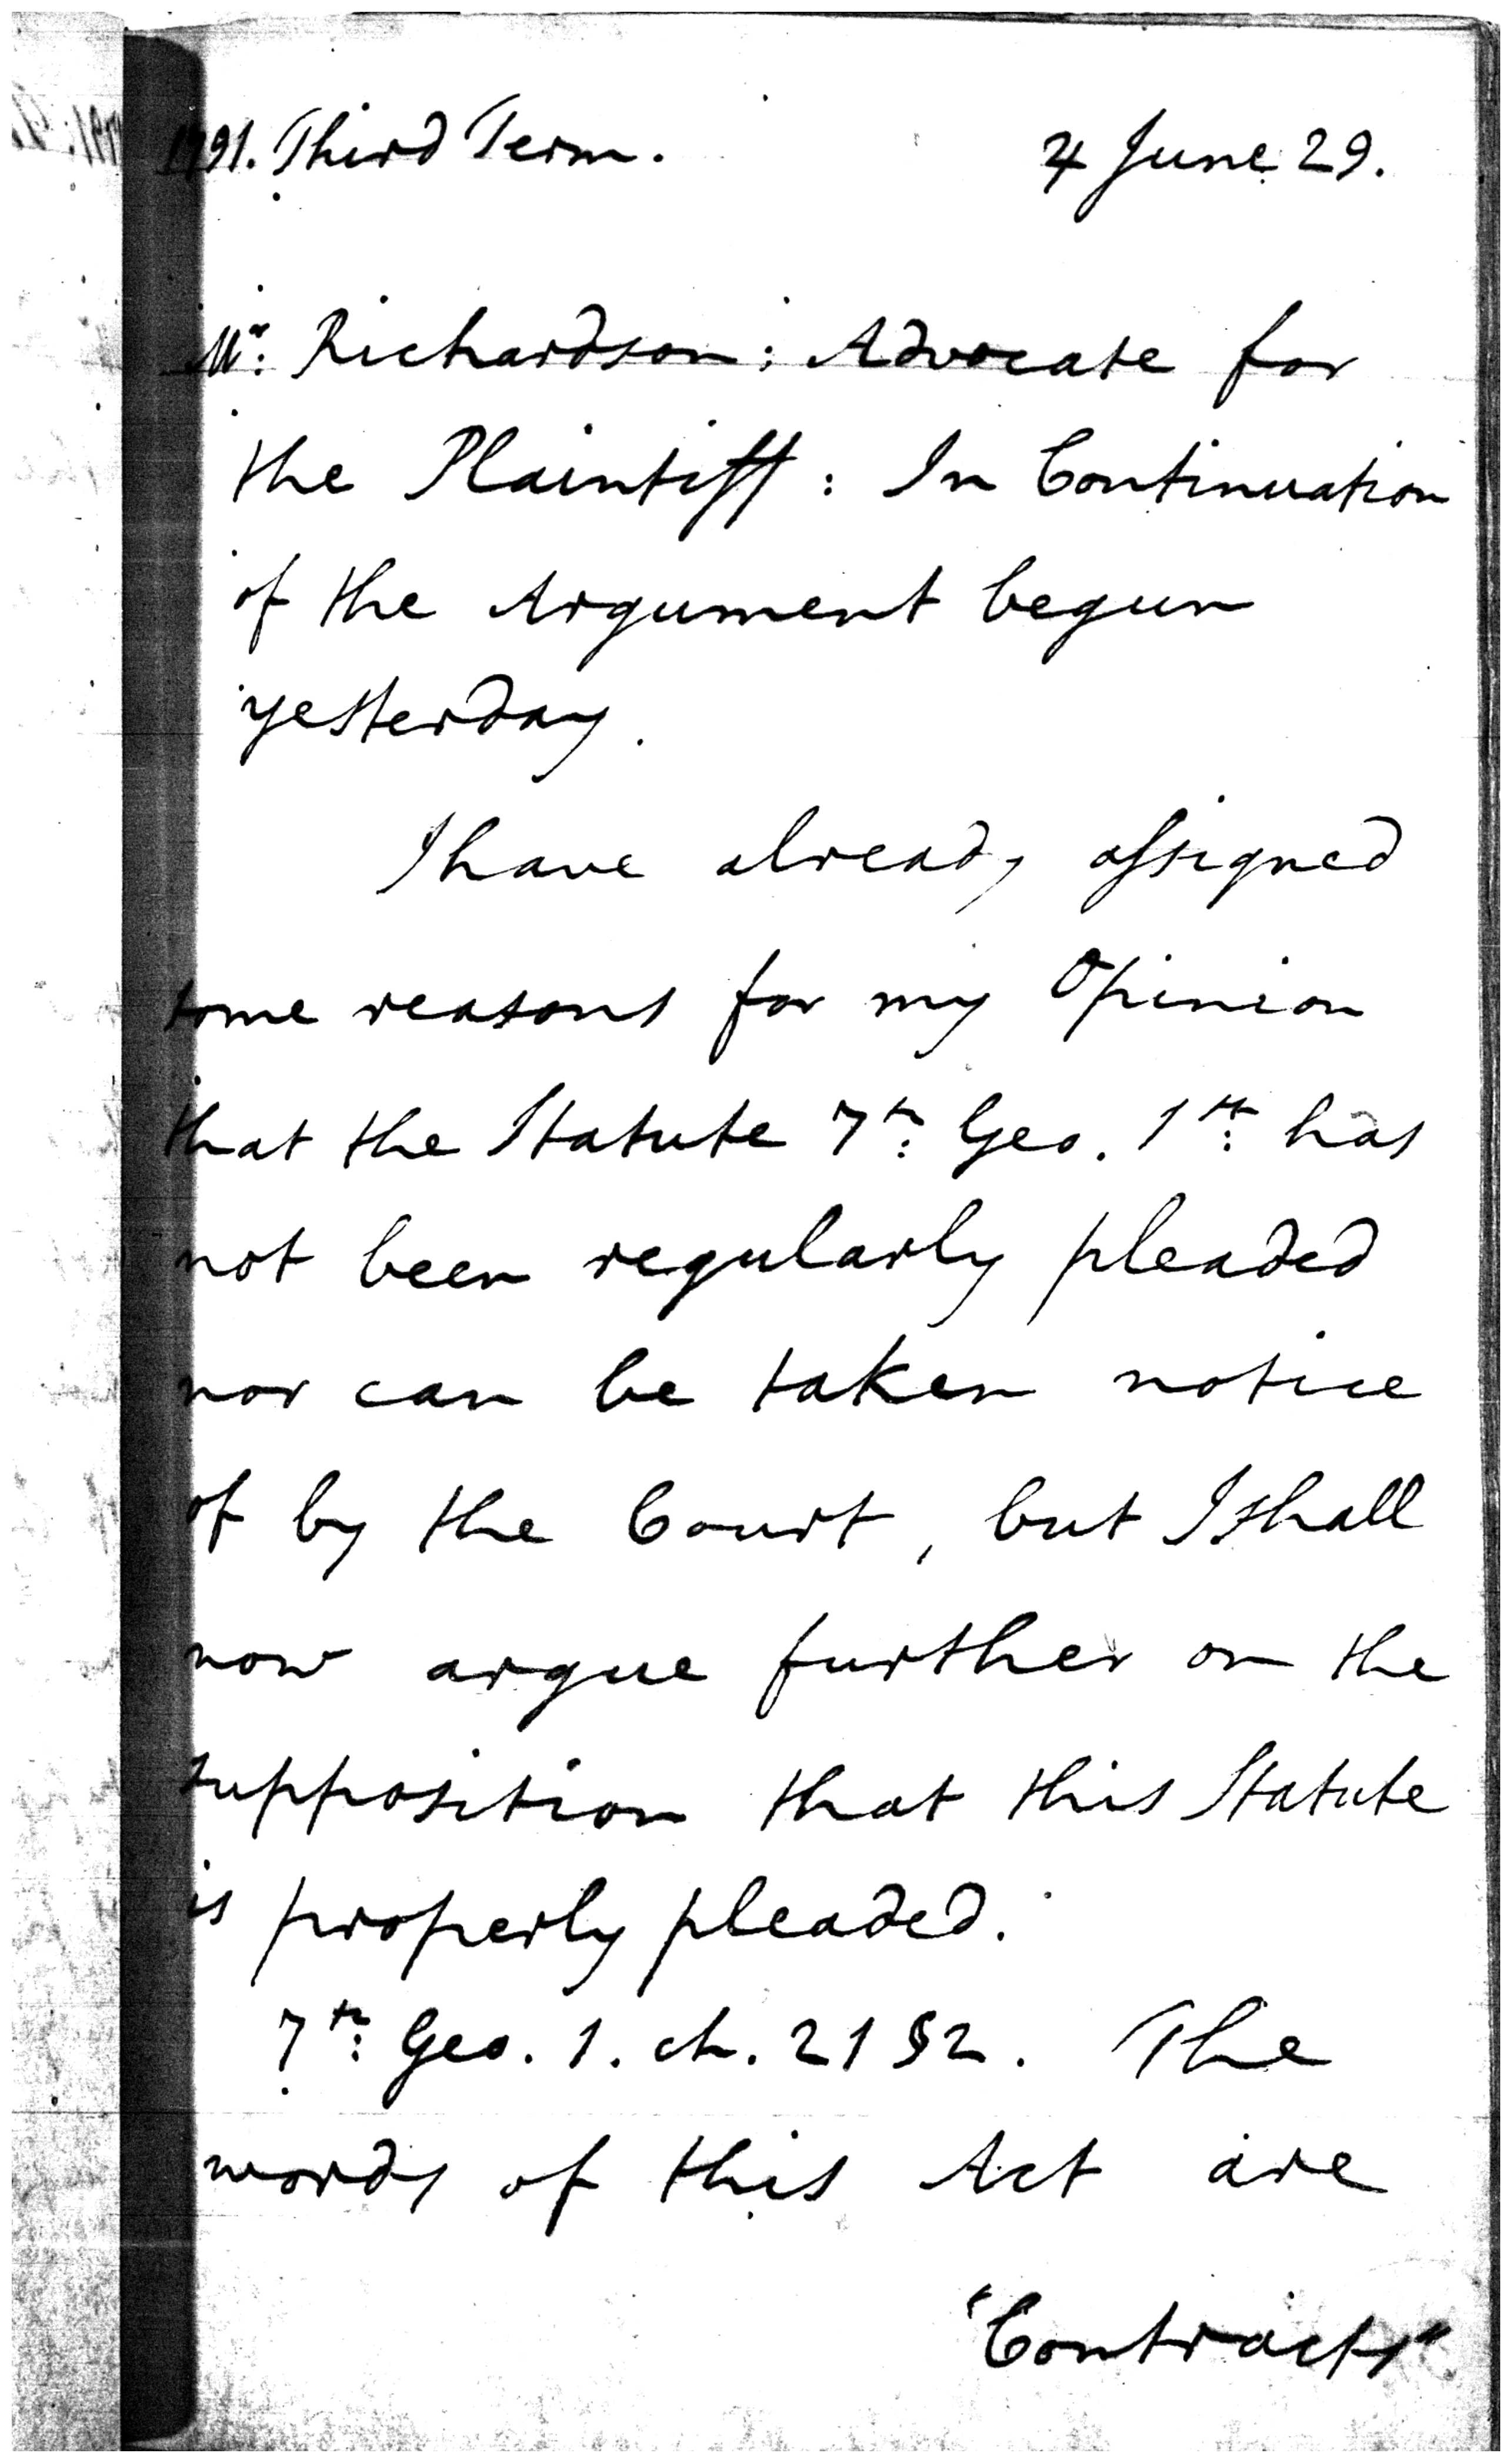 1791. Third Term. 4 June 29.
Mr: Richardson: Advocate for
the Plaintiff: In Continuation
of the Argument begun
yesterday.
I have already assigned
some reasons for my Opinion
that the Statute 7th: Geo. 1st: has
not been regularly pleaded
nor can be taken notice
of by the Court, but I shall
now argue further on the
supposition that this Statute
is properly pleaded.
7th: Geo. 1. ch. 21 §2. The
words of this Act are
"Contracts"